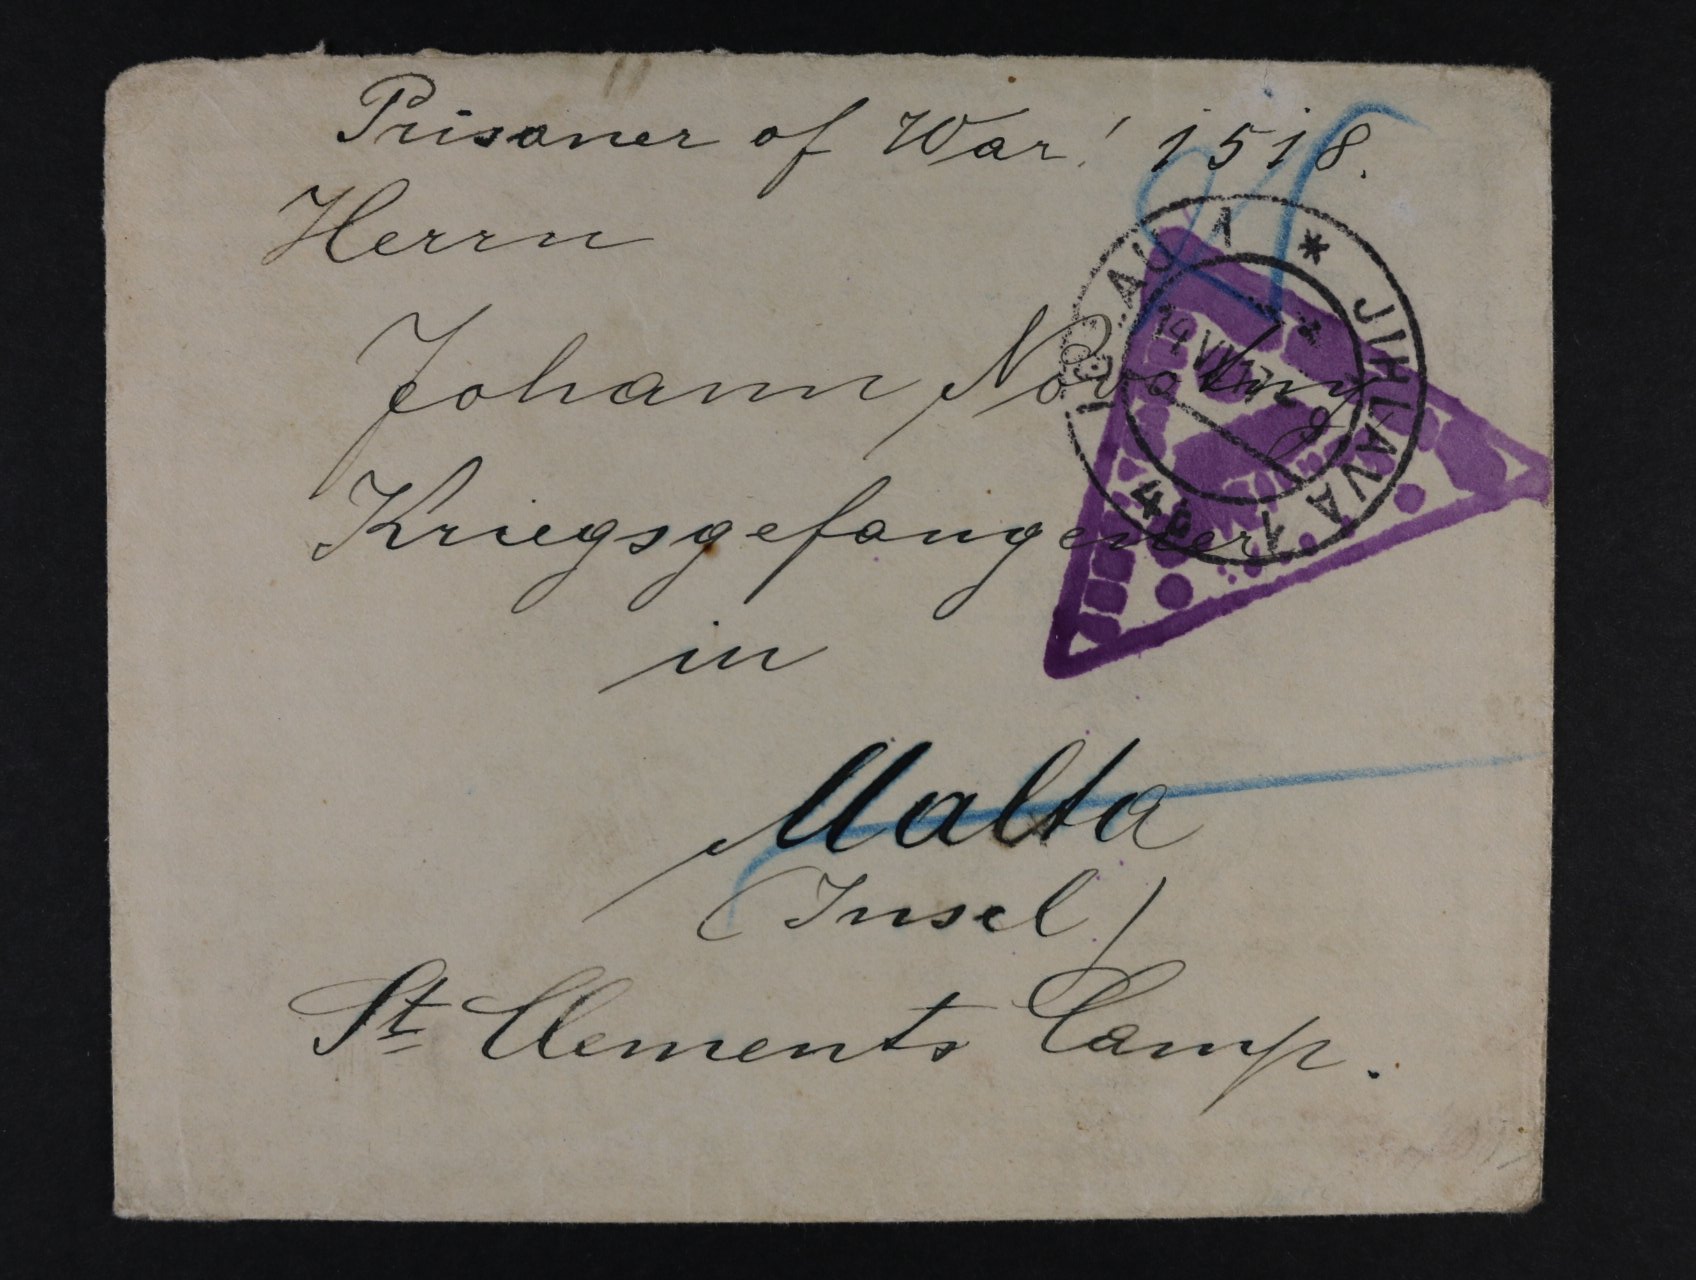 Prisoner of War! 1518.
Herrn
Johann Novotny
Kriegsgefangener
in
Malta
(Insel)
St Clements Camp.
IGLAU 1 * JIHLAVA 1
14 VII
4b